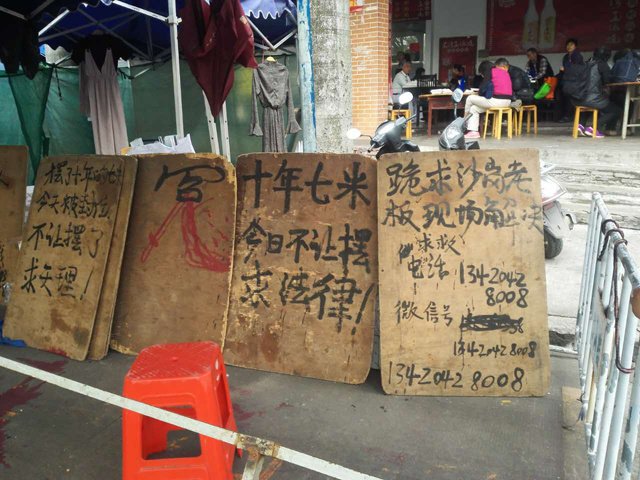 摆了十年的地
不让摆了
求天理!
十年七米
今日不让摆
求法律!
跪求沙岗老
板现场解决
求救
电话 13420428008
微信号
13420428008
13420428008